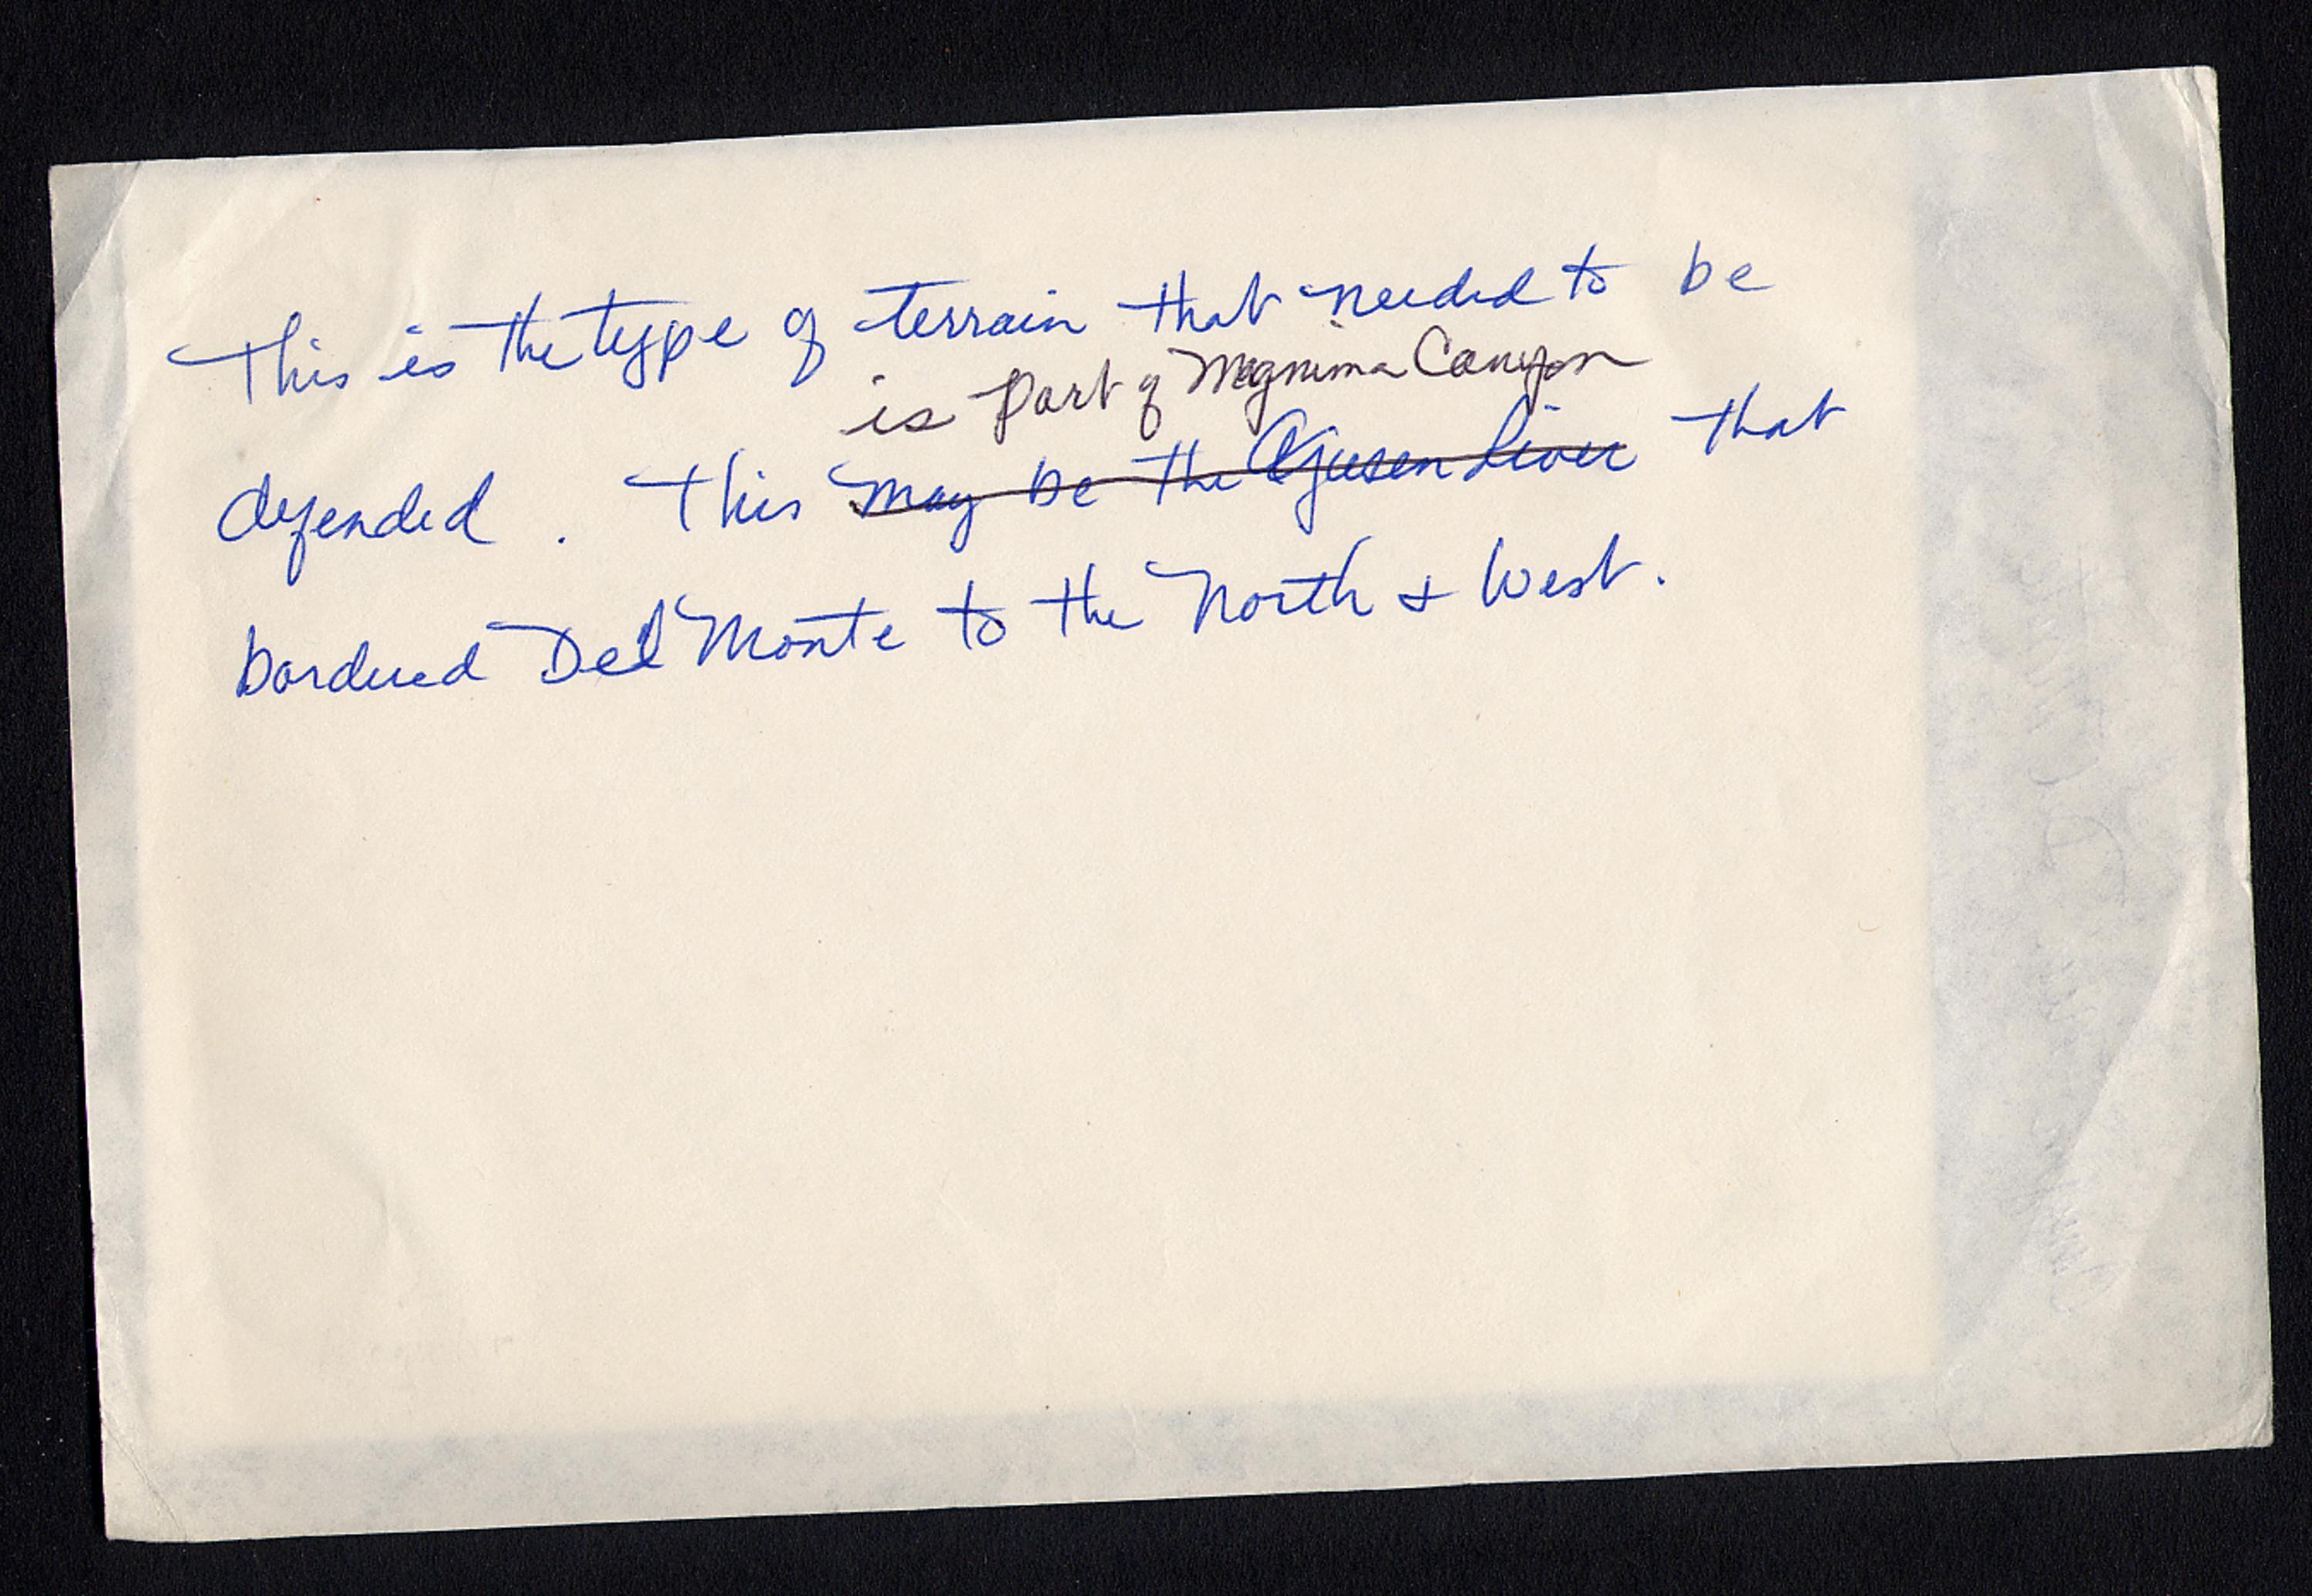 This is the type of terrain that needed to be
is part of Mangima Canyon
defended. This may be the River that
bordered Del Monte to the North & West.